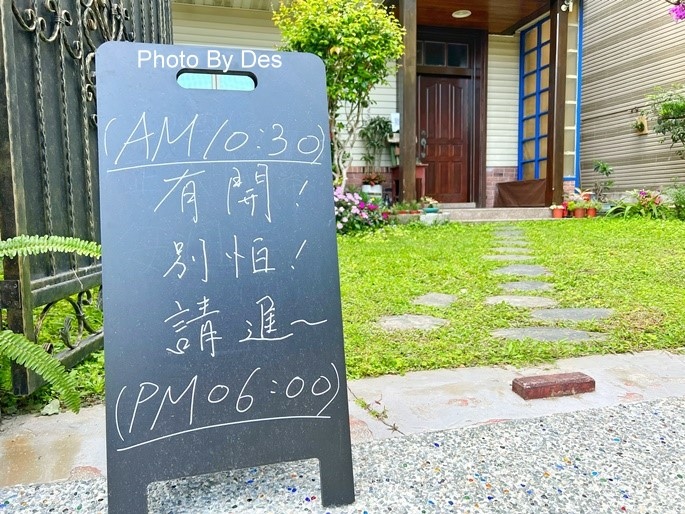 Photo By Des
(AM10:30)
有開!
別怕!
請進~
(PM06:00)